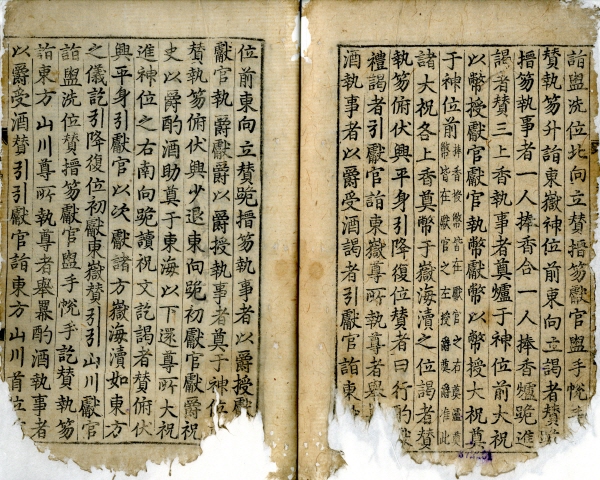 詣盥洗位北向立贊搢笏獻官盥手帨手
贊執笏升詣東嶽神位前東向立謁者贊跪
搢笏執事者一人捧香合一人捧香爐跪進
謁者贊三上香執事者奠爐于神位前大祝
以幣授獻官獻官執幣獻幣以幣授大祝奠
于神位前 神香授幣皆在獻官之右奠爐奠
幣皆在獻官之左授爵奠爵准此
諸大祝各上香奠幣于嶽海瀆之位謁者贊
執笏俯伏興平身引降復位贊者曰行酌獻
禮謁者引獻官詣東嶽尊所執尊者舉
酒執事者以爵受酒謁者引獻官詣東
位前東向立贊跪搢笏執事者以爵授獻
獻官執爵獻爵以爵授執事者奠于神位
贊執笏俯伏興少退東向跪初獻官獻爵祝
史以爵酌酒助奠于東海以下還尊所大祝
進神位之右南向跪讀祝文訖謁者贊俯伏
興平身引獻官以次獻諸方嶽海瀆如東方
之儀訖引降復位初獻東嶽贊引引山川獻官
詣盥洗位贊搢笏獻官盥手帨手訖贊執笏
詣東方山川尊所執尊者舉冪酌酒執事者
以爵受酒贊引引獻官詣東方山川首位